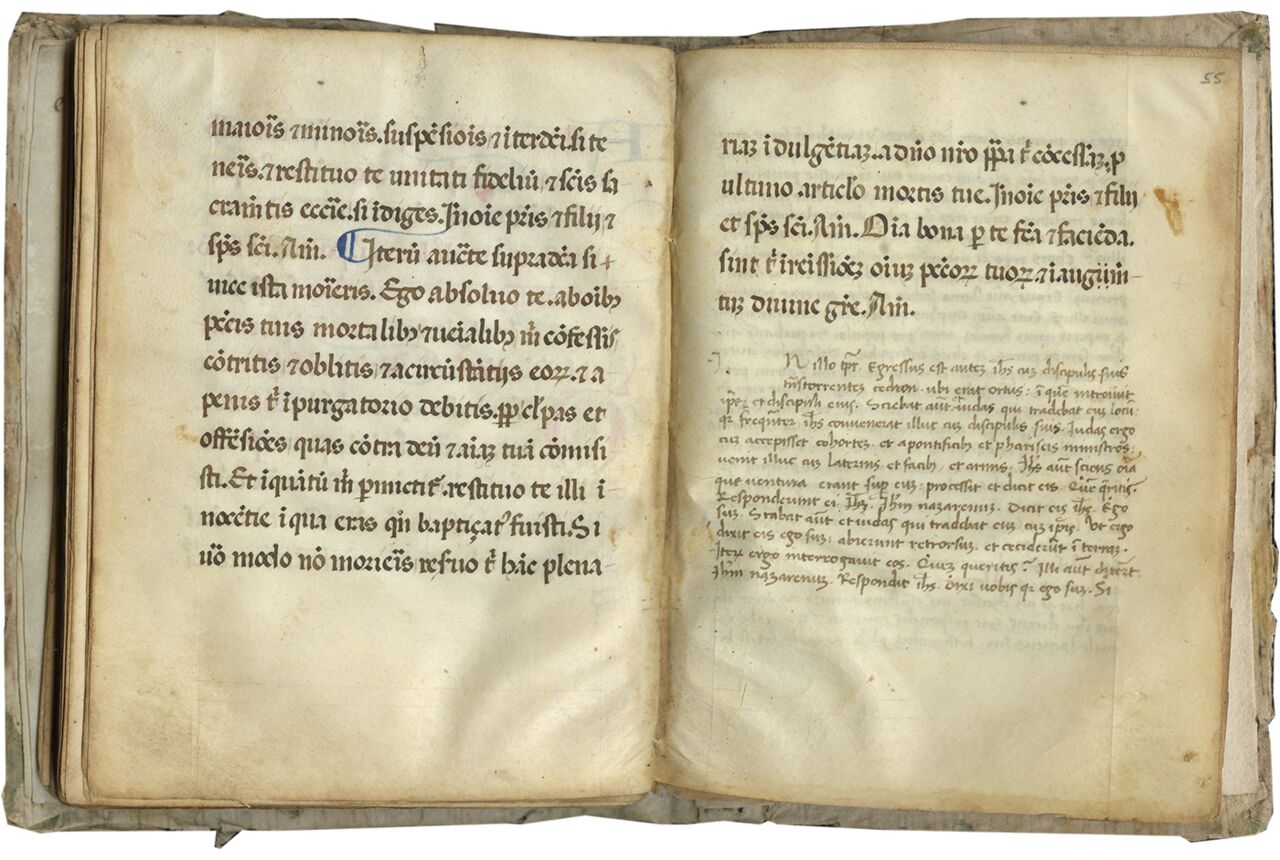 maioīs ⁊ minoīs. suspēsiois ⁊ īterdc̄i. si te
neīs. ⁊ restituo te unitati fideliū ⁊ sc̄is sa
cramētis eccīe. si īdiges. Jnoīe pr̄is ⁊ filij ⁊
sp̄s sc̄i. Am̄. ¶ Jterū auc̄te supradc̄a si-
ue ista moīeris. Ego absoluo te. aboībꝫ
pc̄cis tuis mortalibꝫ ⁊ uēialibꝫ m̄ cōfessis
cōtritis ⁊ oblitis ⁊ acircūstātijs eoꝝ. ⁊ a
penis t̄ īpurgatorio debitis. ꝓp cl̓pas et
offēsiōes quas cōtra deū ⁊ aīaꝫ tuā cōmisi
sti. Et iquātū m̄ ꝑmictit̄. restituo te illi ī
nocētie īqua eris qn̄ baptiçat᾽ fuisti. Si
uō modo nō morieīs resuo t̄ hāc plena-
55
riaꝫ īdulgētiaꝫ. adn̄o nr̄o pp̄a t̄ cōcessaꝫ. ꝓ
ultimo articl̓o mortis tue. Jnoīe pr̄is ⁊ filij
et sp̄s sc̄i. Am̄. Oīa bona ꝑ te fc̄a ⁊ faciēda.
sint t̄ īreissiōeꝫ oīuꝫ pc̄coꝝ tuoꝝ. ⁊ īaugūm̄-
tuꝫ diuine gr̄e. Am̄.
JN illo tp̄r. Egressus est autēꝫ ih̄s cuꝫ discipulis suis
trāstorrenteꝫ cedron. ubi erat ortus: ī que introiuit
ip̄e. et discipuli eius. Sciebat aut̄ iudas qui tradebat euꝫ locū.
qr̄ freqn̄ter ih̄s conuenerat illuc cuꝫ discipulis suis. Iudas ergo
cuꝫ accepisset cohorteꝫ. et apontificibꝫ et phariseis ministros.
uenit illuc cuꝫ laternis et facibꝫ. et armis. Ih̄s aut̄ sciens oīa
que uentura erant suꝑ euꝫ: processit et dicit eis. Que q̄ritis.
Responderunt ei. Ih̄ꝫ nazarenuꝫ. Dicit eis ih̄s. Ego
suꝫ. Stabat aut̄ et iudas qui tradebat euꝫ. cuꝫ ip̄is. Ut ergo
dixit eis ego suꝫ: abierunt retrorsuꝫ. et ceciderūt ī terraꝫ.
Iteꝝ ergo interrogauit eos. Queꝫ queritis? Illi aut̄ dixer̄t.
Ih̄m nazarenuꝫ. Respondit ih̄s. dixi uobis qr̄ ego suꝫ. Si